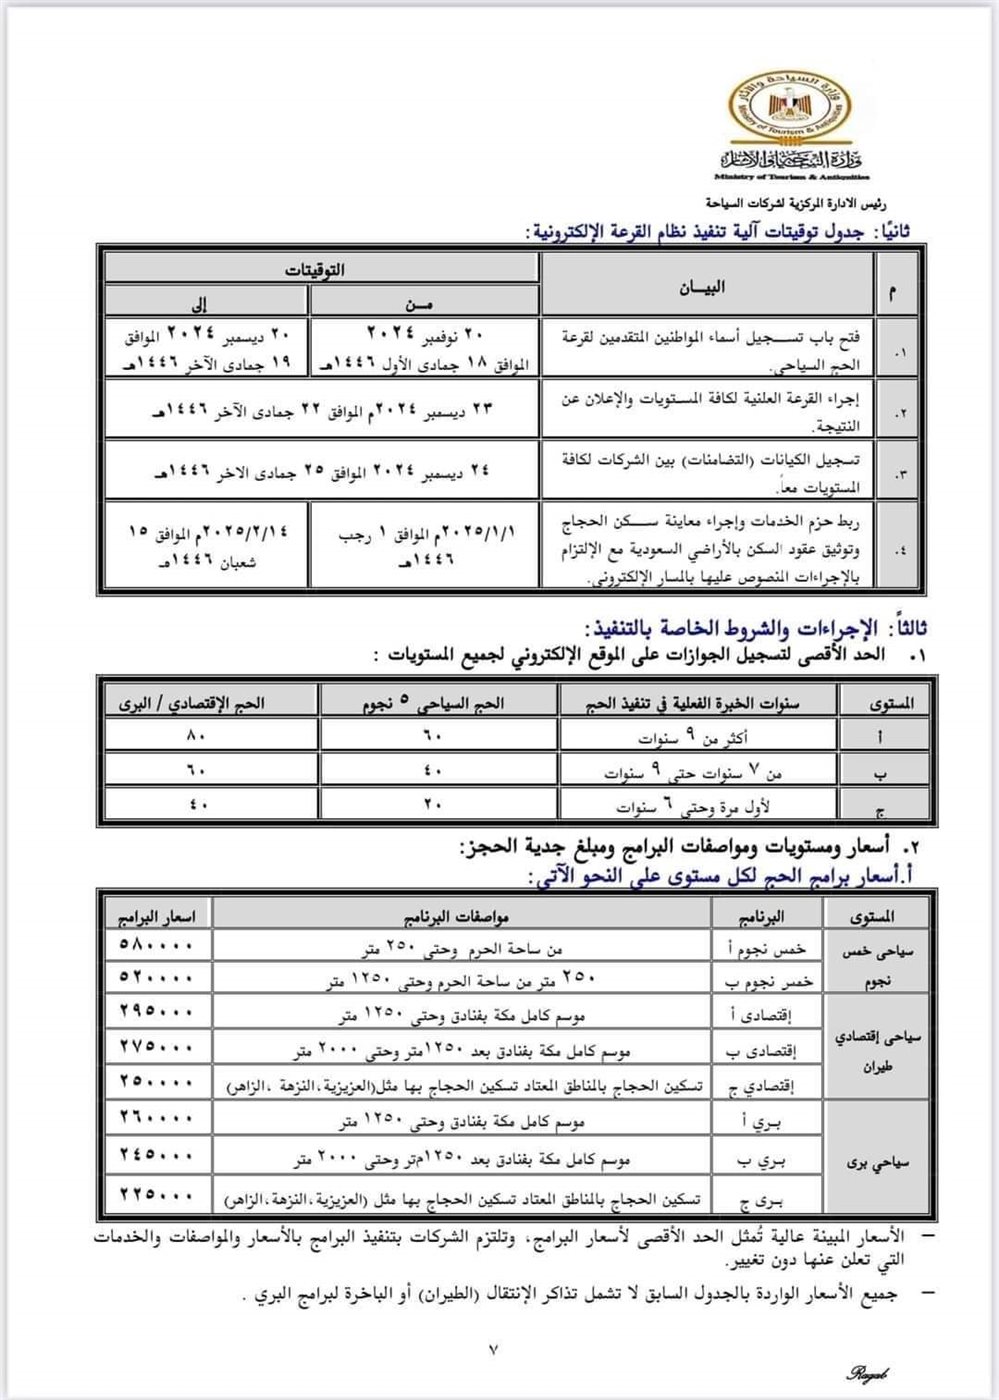 وزارة السياحة والآثار
Ministry of Tourism & Antiquities
وزارة السياحة والآثار
Ministry of Tourism & Antiquities
رئيس الادارة المركزية لشركات السياحة
ثانيًا: جدول توقيتات آلية تنفيذ نظام القرعة الإلكترونية:
م البيـــان التوقيتات
مـــن إلى
٠١ فتح باب تســـجيل أسماء المواطنين المتقدمين لقرعة ٢٠ نوفمبر ٢٠٢٤ ٢٠ ديسمبر ٢٠٢٤ الموافق
الحج السياحى. الموافق ١٨ جمادى الأول ١٤٤٦هـ ١٩ جمادى الآخر ١٤٤٦هـ
٠٢ إجراء القرعة العلنية لكافة المستويات والإعلان عن ٢٣ ديسمبر ٢٠٢٤م الموافق ٢٢ جمادى الآخر ١٤٤٦هـ
النتيجة.
٠٣ تسجيل الكيانات (التضامنات) بين الشركات لكافة ٢٤ ديسمبر ٢٠٢٤ الموافق ٢٥ جمادى الاخر ١٤٤٦هـ
المستويات معاً.
٠٤ ربط حزم الخدمات وإجراء معاينة ســـكن الحجاج ٢٠٢٥/١/١م الموافق ١ رجب ٢٠٢٥/٢/١٤م الموافق ١٥
وتوثيق عقود السكن بالأراضي السعودية مع الإلتزام ١٤٤٦هـ شعبان ١٤٤٦هـ
بالإجراءات المنصوص عليها بالمسار الإلكتروني.
ثالثاً: الإجراءات والشروط الخاصة بالتنفيذ:
٠١ الحد الأقصى لتسجيل الجوازات على الموقع الإلكتروني لجميع المستويات :
المستوى سنوات الخبرة الفعلية في تنفيذ الحج الحج السياحى ٥ نجوم الحج الإقتصادي / البرى
أ أكثر من ٩ سنوات ٦٠ ٨٠
ب من ٧ سنوات حتى ٩ سنوات ٤٠ ٦٠
ج لأول مرة وحتى ٦ سنوات ٢٠ ٤٠
٠٢ أسعار ومستويات ومواصفات البرامج ومبلغ جدية الحجز:
أ.أسعار برامج الحج لكل مستوى على النحو الآتي:
المستوى البرنامج مواصفات البرنامج اسعار البرامج
سياحى خمس نجوم خمس نجوم أ من ساحة الحرم وحتى ٢٥٠ متر ٥٨٠٠٠٠
خمس نجوم ب ٢٥٠ متر من ساحة الحرم وحتى ١٢٥٠ متر ٥٢٠٠٠٠
سياحى إقتصادي طيران إقتصادى أ موسم كامل مكة بفنادق وحتى ١٢٥٠ متر ٢٩٥٠٠٠
إقتصادى ب موسم كامل مكة بفنادق بعد ١٢٥٠متر وحتى ٢٠٠٠ متر ٢٧٥٠٠٠
إقتصادي ج تسكين الحجاج بالمناطق المعتاد تسكين الحجاج بها مثل(العزيزية،النزهة ،الزاهر) ٢٥٠٠٠٠
سياحي برى بـري أ موسم كامل مكة بفنادق وحتى ١٢٥٠ متر ٢٦٠٠٠٠
بـري ب موسم كامل مكة بفنادق بعد ١٢٥٠متر وحتى ٢٠٠٠ متر ٢٤٥٠٠٠
بـرى ج تسكين الحجاج بالمناطق المعتاد تسكين الحجاج بها مثل (العزيزية،النزهة،الزاهر) ٢٢٥٠٠٠
– الأسعار المبينة عالية تُمثل الحد الأقصى لأسعار البرامج، وتلتزم الشركات بتنفيذ البرامج بالأسعار والمواصفات والخدمات
التي تعلن عنها دون تغيير.
– جميع الأسعار الواردة بالجدول السابق لا تشمل تذاكر الإنتقال (الطيران) أو الباخرة لبرامج البري .
٧
Ragab